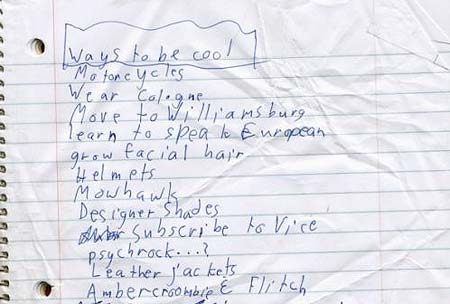 Ways to be cool
Motorcycles
Wear Cologne
Move to Williamsburg
learn to speak European
grow facial hair
Helmets
Mowhawk
Designer Shades
Subscribe to Vice
psychrock...?
Leather jackets
Ambercroombie & Flitch